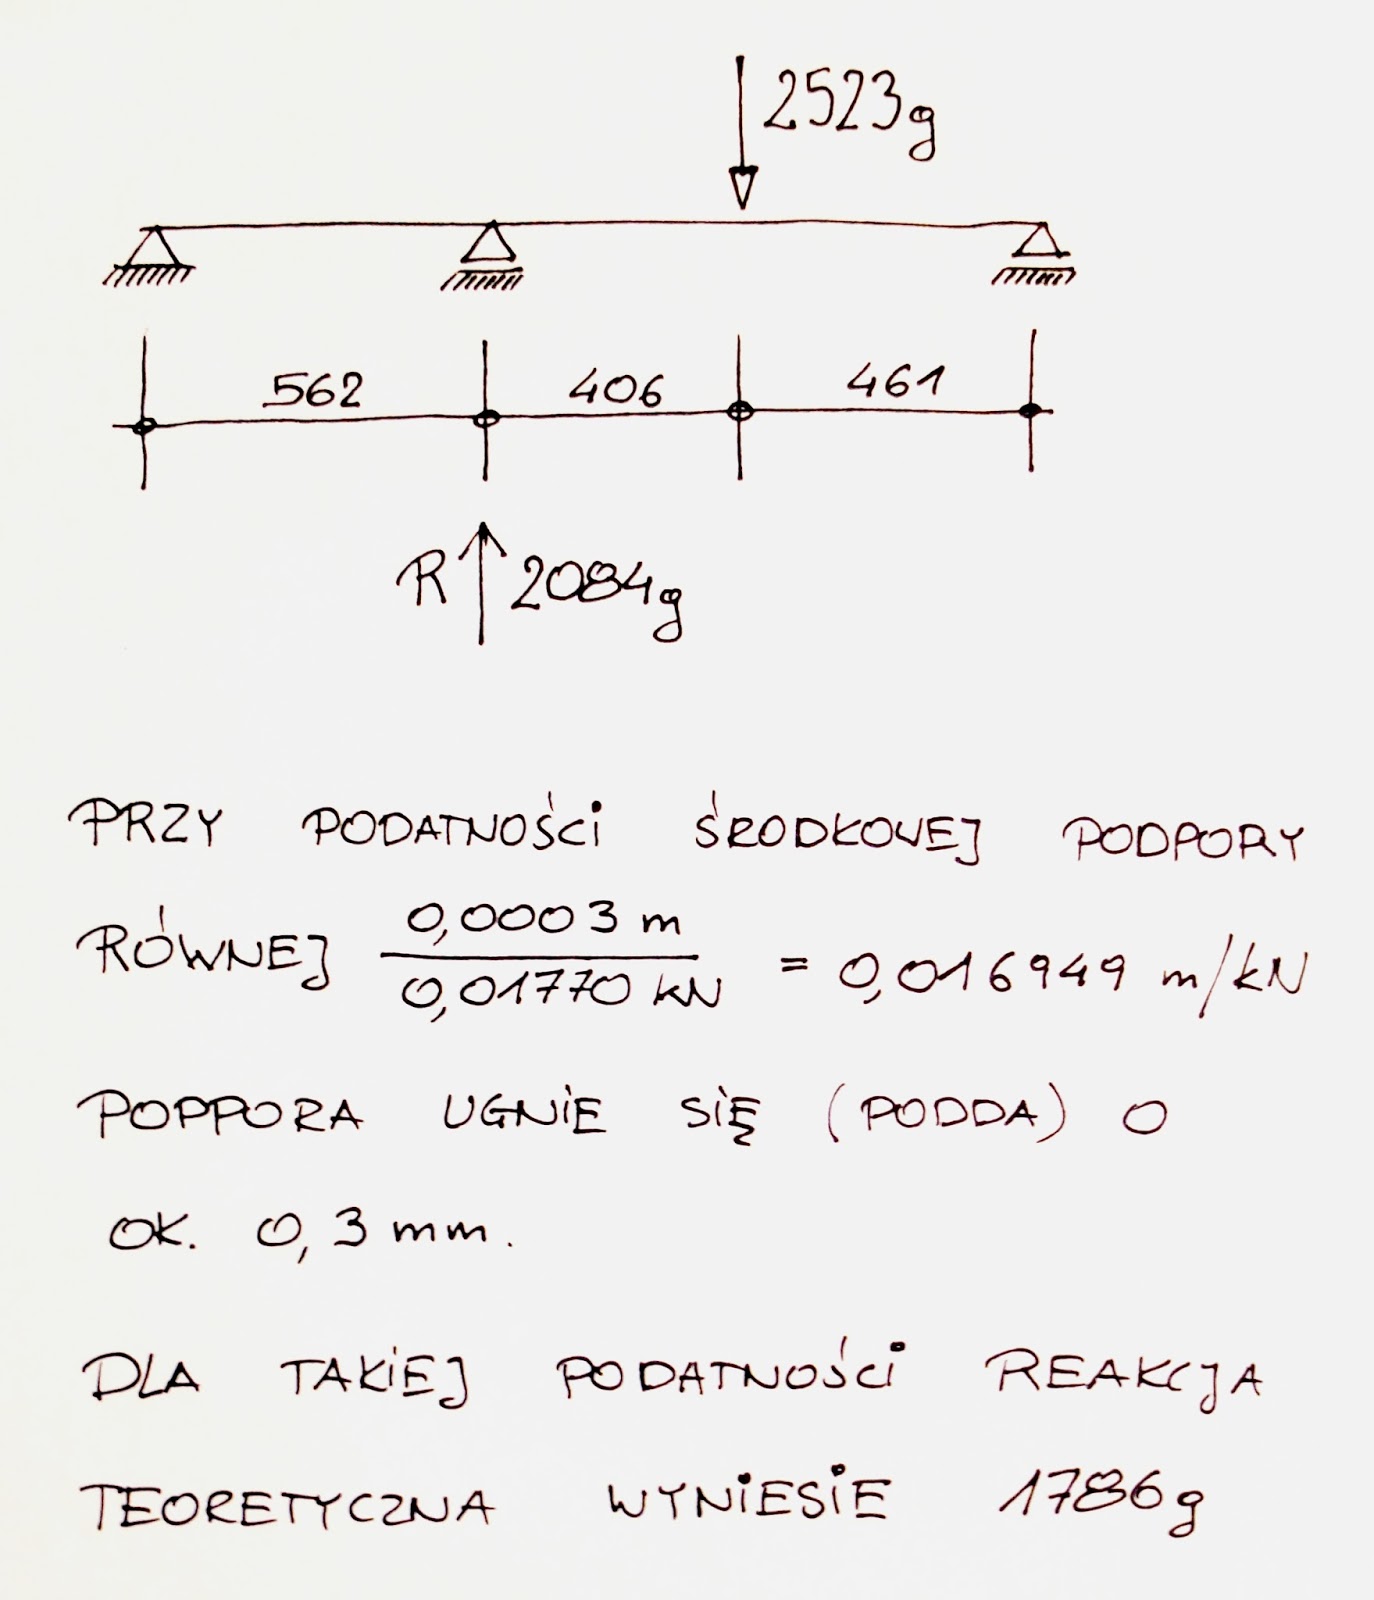 2523g
562 406 461
R 2084g
PRZY PODATNOŚCI ŚRODKOWEJ PODPORY
RÓWNEJ 0,0003 m / 0,01770 kN = 0,016949 m/kN
POPPORA UGNIE SIĘ (PODDA) O
OK. 0,3 mm.
DLA TAKIEJ PODATNOŚCI REAKCJA
TEORETYCZNA WYNIESIE 1786g